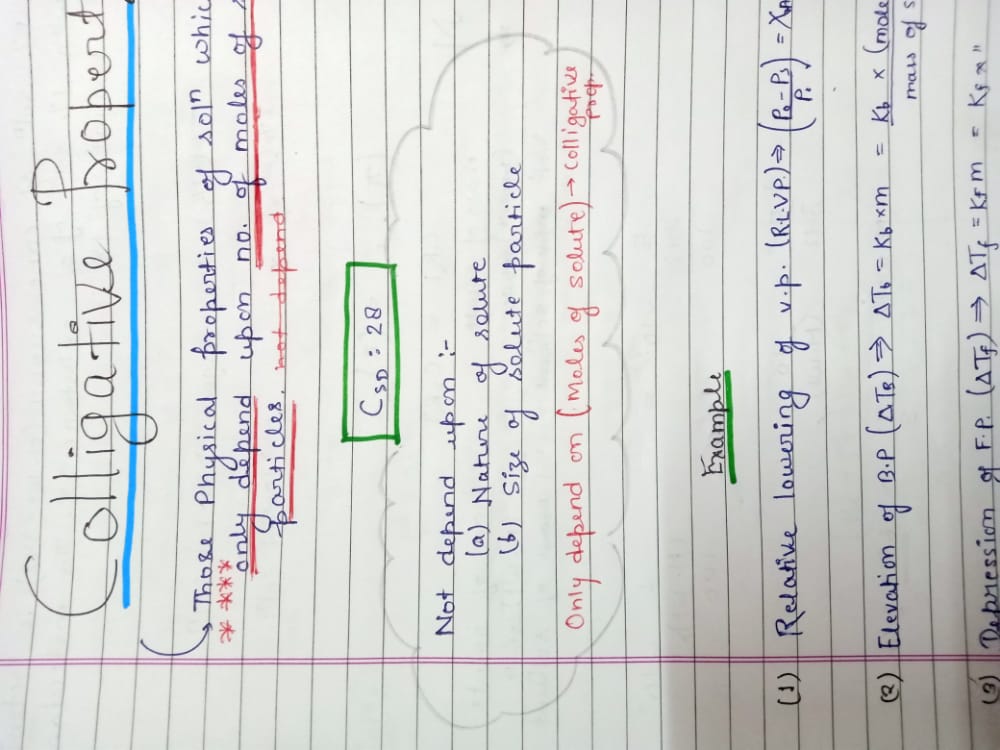 Colligative Propert
→ Those Physical properties of solⁿ whic
**** only depend upon no. of moles of
particles. not depend
CSD : 28
Not depend upon :-
(a) Nature of solute
(b) Size of solute particle
Only depend on (Moles of solute) → Colligative
prop.
Example
(1) Relative lowering of v.p. (R.L.V.P.) ⇒ (P₀ - Ps / P₀) = XA
(2) Elevation of B.P (ΔTB) ⇒ ΔTb = Kb × m = Kb × (mole
mass of s
(3) Depression of F.P. (ΔTf) ⇒ ΔTf = Kf m = Kf × "